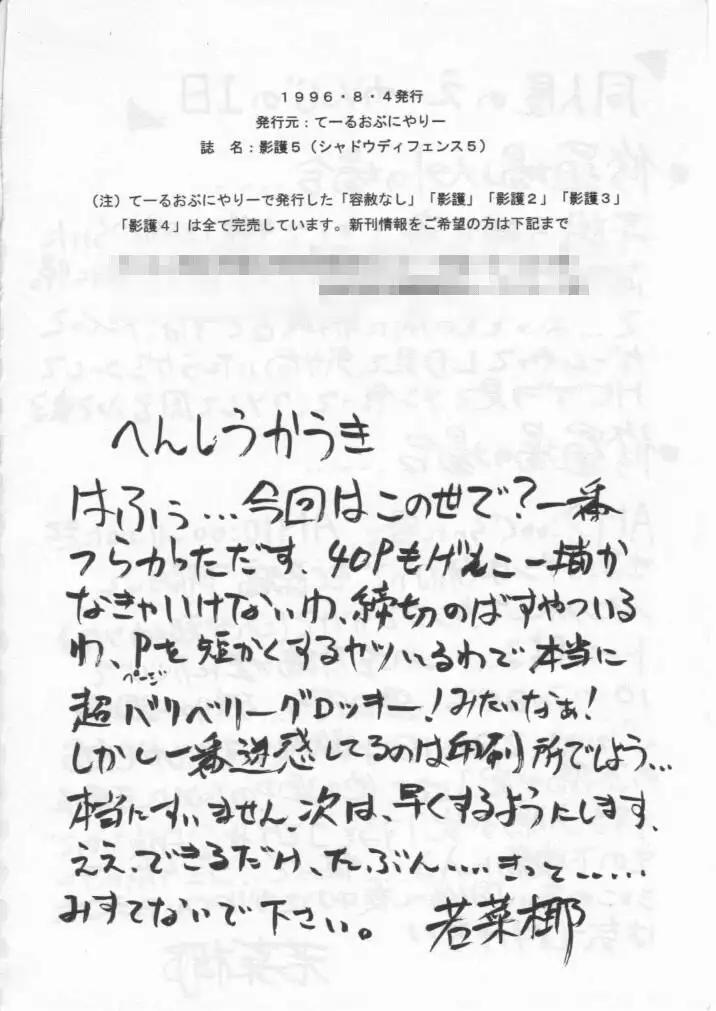 １９９６・８・４発行
発行元：てーるおぶにやりー
誌　名：影護５（シャドウディフェンス５）
（注）てーるおぶにやりーで発行した「容赦なし」「影護」「影護２」「影護３」
「影護４」は全て完売しています。新刊情報をご希望の方は下記まで
へんしうかうき
はふぅ…今回はこの世で？一番
つらかっただす、40Pもげんこー描か
なきゃいけないわ、締切のばすやついる
わ、Pを短かくするヤツいるわで本当に
ページ
超ベリベリーグロッキー！みたいなぁ！
しかし一番迷惑してるのは印刷所でしよう…
本当にすいません。次は、早くするようにします、
ええ、できるだけ、たぶん……きって……
みすてないで下さい。 若菜椰